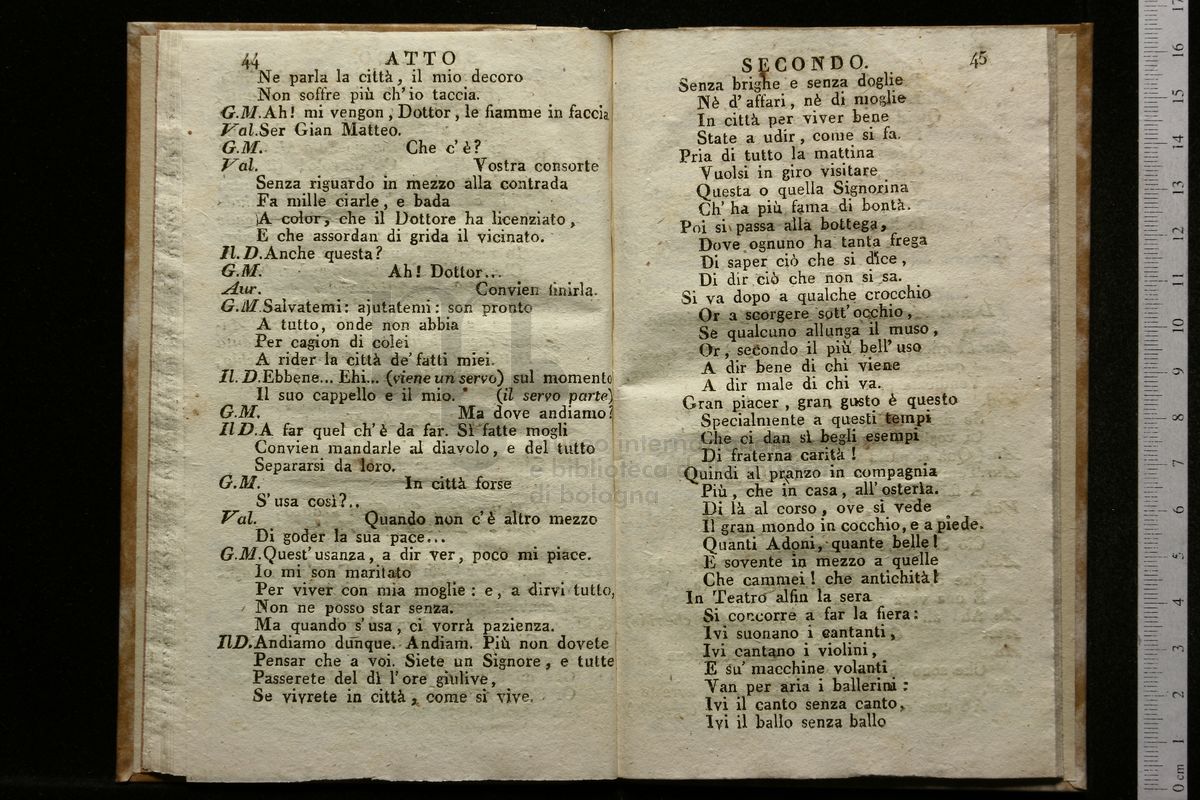 44
ATTO
Ne parla la città, il mio decoro
Non soffre più ch'io taccia.
G.M. Ah! mi vengon, Dottor, le fiamme in faccia
Val. Ser Gian Matteo.
G.M. Che c'è?
Val. Vostra consorte
Senza riguardo in mezzo alla contrada
Fa mille ciarle, e bada
A color, che il Dottore ha licenziato,
E che assordan di grida il vicinato.
Il. D. Anche questa?
G.M. Ah! Dottor...
Aur. Convien finirla.
G.M Salvatemi: ajutatemi: son pronto
A tutto, onde non abbia
Per cagion di colei
A rider la città de' fatti miei.
Il. D. Ebbene... Ehi... (viene un servo) sul momento
Il suo cappello e il mio. (il servo parte)
G.M. Ma dove andiamo?
Il D. A far quel ch'è da far. Sì fatte mogli
Convien mandarle al diavolo, e del tutto
Separarsi da loro.
G.M. In città forse
S'usa così?..
Val. Quando non c'è altro mezzo
Di goder la sua pace...
G.M. Quest'usanza, a dir ver, poco mi piace.
Io mi son maritato
Per viver con mia moglie: e, a dirvi tutto,
Non ne posso star senza.
Ma quando s'usa, ci vorrà pazienza.
Il D. Andiamo dunque. Andiam. Più non dovete
Pensar che a voi. Siete un Signore, e tutte
Passerete del dì l'ore giulive,
Se vivrete in città, come si vive.
SECONDO.
45
Senza brighe e senza doglie
Nè d'affari, nè di moglie
In città per viver bene
State a udir, come si fa.
Pria di tutto la mattina
Vuolsi in giro visitare
Questa o quella Signorina
Ch'ha più fama di bontà.
Poi si passa alla bottega,
Dove ognuno ha tanta frega
Di saper ciò che si dice,
Di dir ciò che non si sa.
Si va dopo a qualche crocchio
Or a scorgere sott'occhio,
Se qualcuno allunga il muso,
Or, secondo il più bell'uso
A dir bene di chi viene
A dir male di chi va.
Gran piacer, gran gusto è questo
Specialmente a questi tempi
Che ci dan sì begli esempi
Di fraterna carità!
Quindi al pranzo in compagnia
Più, che in casa, all'osteria.
Di là al corso, ove si vede
Il gran mondo in cocchio, e a piede.
Quanti Adoni, quante belle!
E sovente in mezzo a quelle
Che cammei! che antichità!
In Teatro alfin la sera
Si concorre a far la fiera:
Ivi suonano i cantanti,
Ivi cantano i violini,
E su' macchine volanti
Van per aria i ballerini:
Ivi il canto senza canto,
Ivi il ballo senza ballo